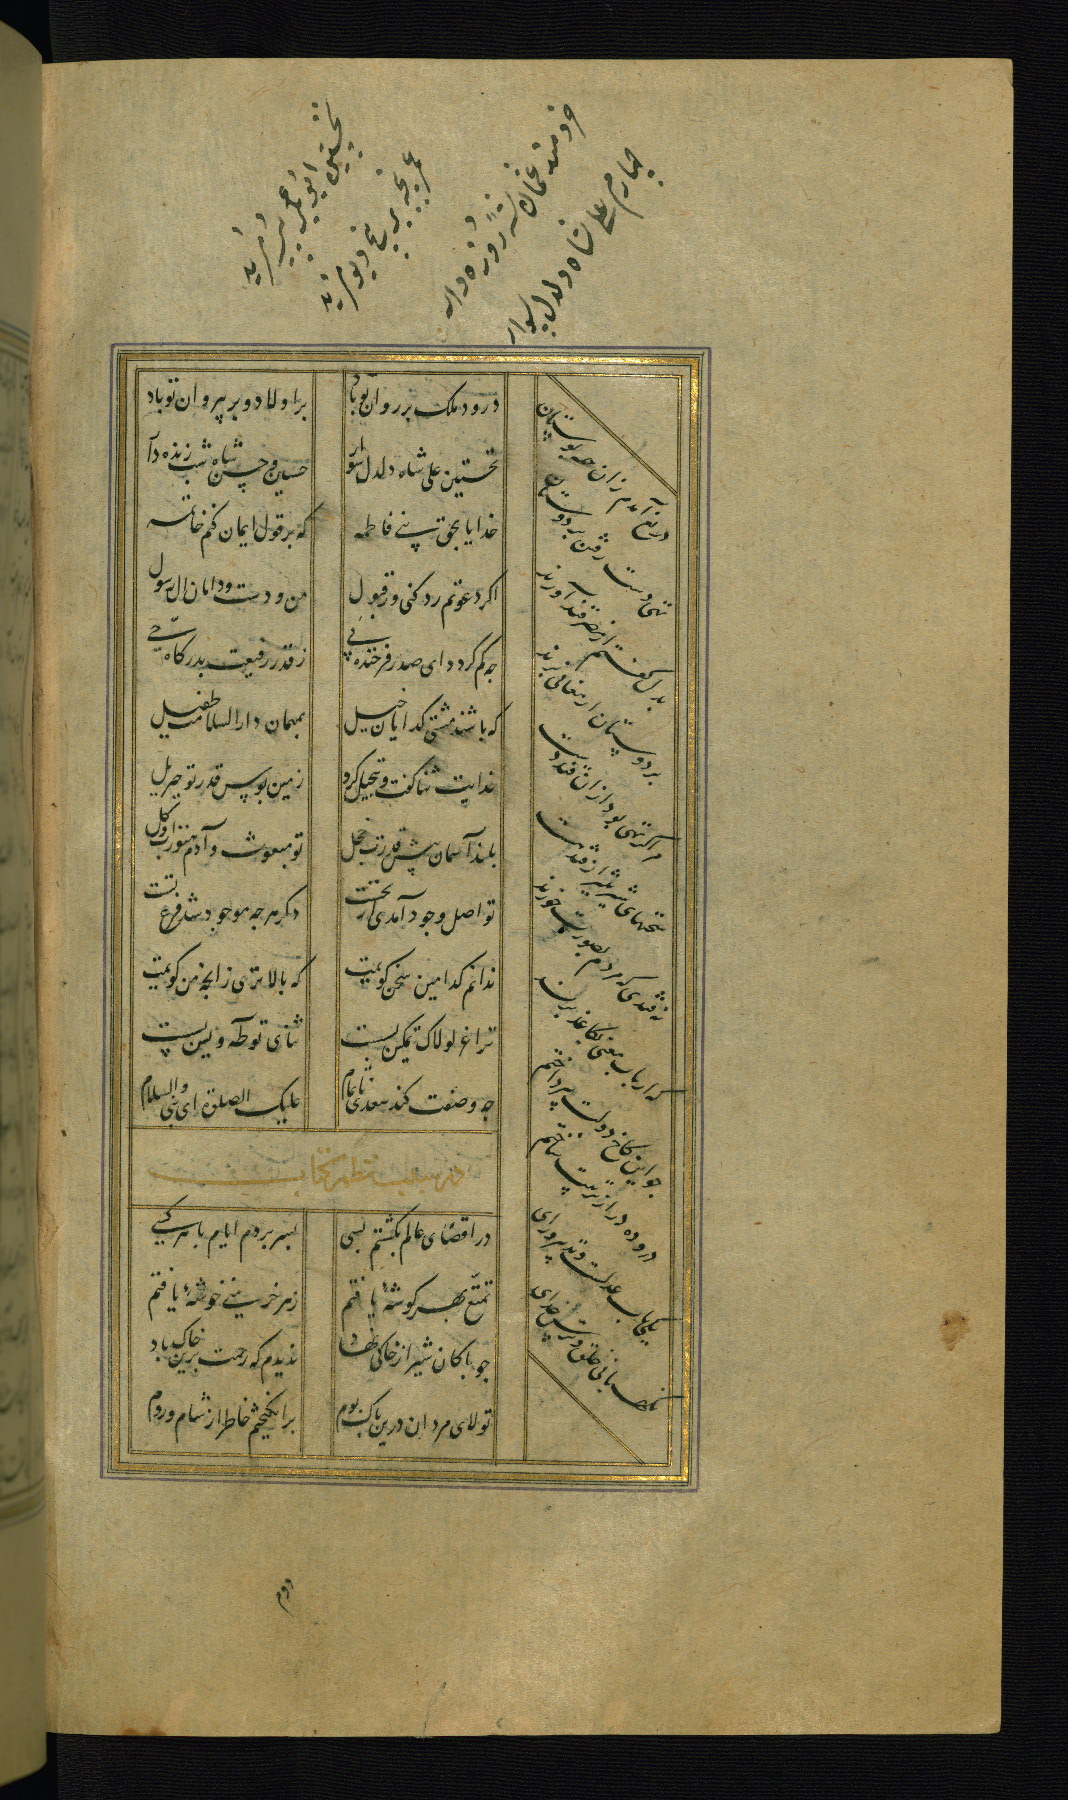 نخستین ابوبکر پیر مرید
عمر پنجه بر پیچ دیو مرید
خردمند عثمان شب زنده دار
چهارم علی شاه دلدل سوار
درود ملک بر روان تو باد
بر اولاد و بر پیروان تو باد
نخستین علی شاه دلدل سوار
حسین و حسن شاه شب زنده دار
خدایا بحق بنی فاطمه
که بر قول ایمان کنم خاتمه
اکر دعوتم رد کنی ور قبول
من و دست و دامان ال رسول
چه کم کردد ای صدر فرخنده پی
ز قدر رفیعت بدرکاه حی
که باشند مشتی کدایان خیل
بمهمان دارالسلامت طفیل
خدایت ثنا کفت و تبجیل کرد
زمین بوس قدر تو جبریل
بلند آسمان پیش قدرت خجل
تو مبعوث و آدم هنوز آب و کل
تو اصل وجود آمدی از نخست
دکر هر چه موجود شد فرع تست
ندانم کدامین سخن کویمت
که بالاتری زانچه من کویمت
ترا عز لولاک تمکین بست
ثنای تو طه و یس بست
چه وصفت کند سعدی ناتمام
علیک الصلوة ای نبی والسلام
در سبب نظم کتاب
در اقصای عالم بکشتم بسی
بسر بردم ایام با هر کسی
تمتع بهر کوشهٔ یافتم
ز هر خرمنی خوشهٔ یافتم
چو پاکان شیراز خاکی نهاد
ندیدم که رحمت برین خاک باد
تولای مردان درین پاک بوم
برانکیختم خاطر از شام و روم
دریغ آمدم زان همه بوستان
تهی دست رفتن بر دوستان
بدل کفتم از مصر قند آورند
بر دوستان ارمغانی برند
مرا کر تهی بود از ان قند دست
سخنهای شیرین تر از قند هست
نه قندی که مردم بصورت خورند
که ارباب معنی بکاغذ برند
چو این کاخ دولت بپرداختم
درو ده در از تربیت ساختم
یکی باب عدلست و تدبیر و رای
نکهبانی خلق و ترس خدای
دوم